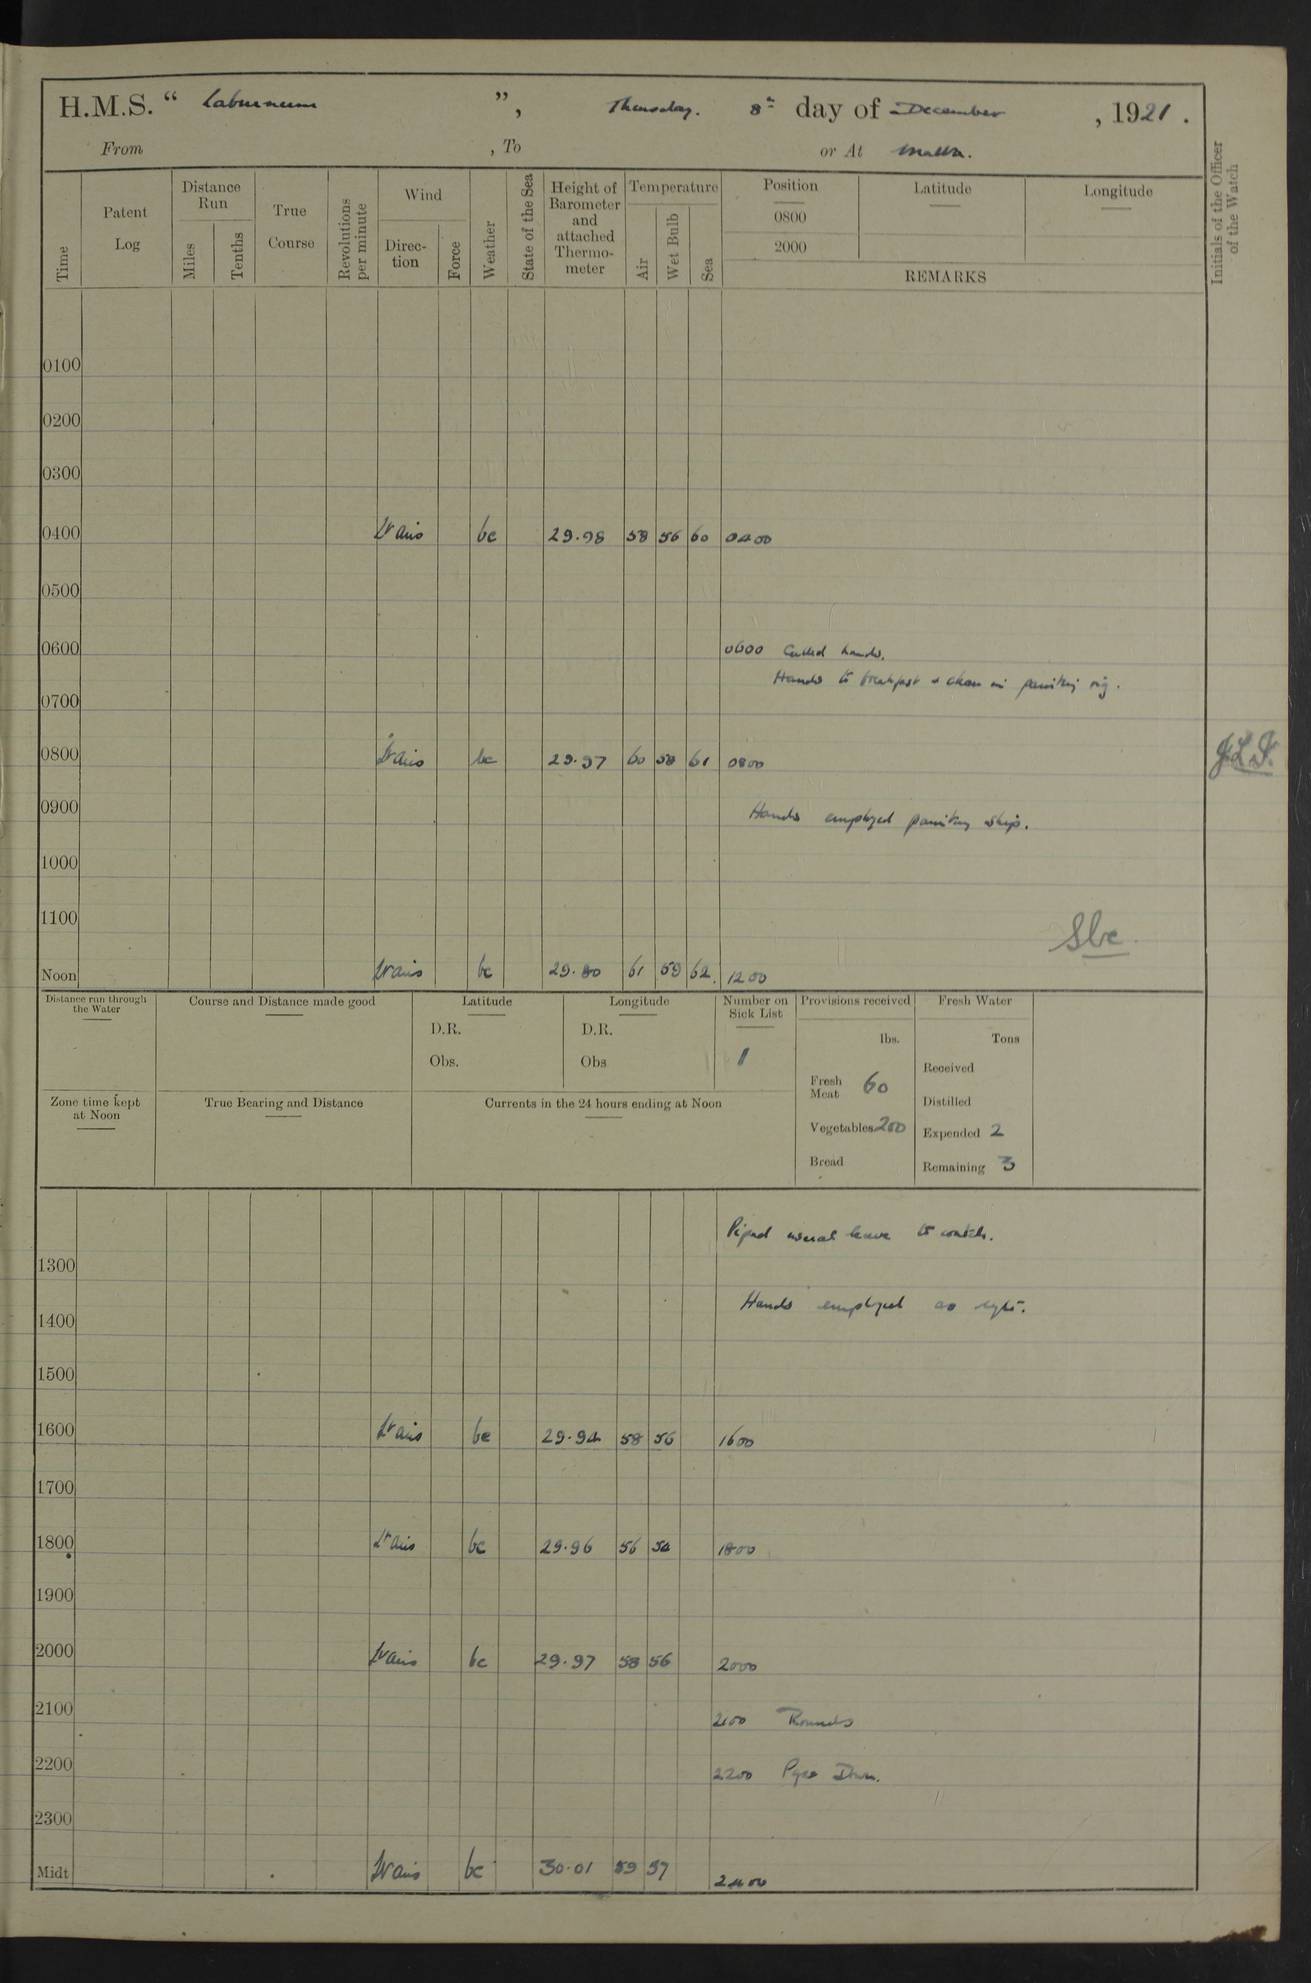 H.M.S. “ Laburnum ”, Thursday. 8th day of December, 1921.
From , To or At Malta.
Time
Patent Log
Distance Run
Miles
Tenths
True Course
Revolutions per minute
Wind
Direc-tion
Force
Weather
State of the Sea
Height of Barometer and attached Thermo-meter
Temperature
Air
Wet Bulb
Sea
Position
0800
2000
Latitude
Longitude
REMARKS
Initials of the Officer of the Watch
0100
0200
0300
0400 Lt airs bc 29.98 58 56 60 0400
0500
0600 0600 Called hands.
Hands to breakfast & clean in painting rig.
0700
0800 Lt airs bc 29.97 60 58 61 0800
0900 Hands employed painting ship.
1000
1100
Noon Lt airs bc 29.90 61 59 62 1200
Distance run through the Water
Course and Distance made good
Latitude
D.R.
Obs.
Longitude
D.R.
Obs
Number on Sick List
1
Provisions received
lbs.
Fresh Meat 60
Vegetables 200
Bread
Fresh Water
Tons
Received
Distilled
Expended 2
Remaining 3
Zone time kept at Noon
True Bearing and Distance
Currents in the 24 hours ending at Noon
Piped usual leave to watch.
1300
Hands employed as reqte.
1400
1500
1600 Lt airs bc 29.94 58 56 1600
1700
1800 Lt airs bc 29.96 56 54 1800
1900
2000 Lt airs bc 29.97 58 56 2000
2100 2100 Rounds
2200 2200 Pipe Down.
2300
Midt Lt airs bc 30.01 59 57 2400